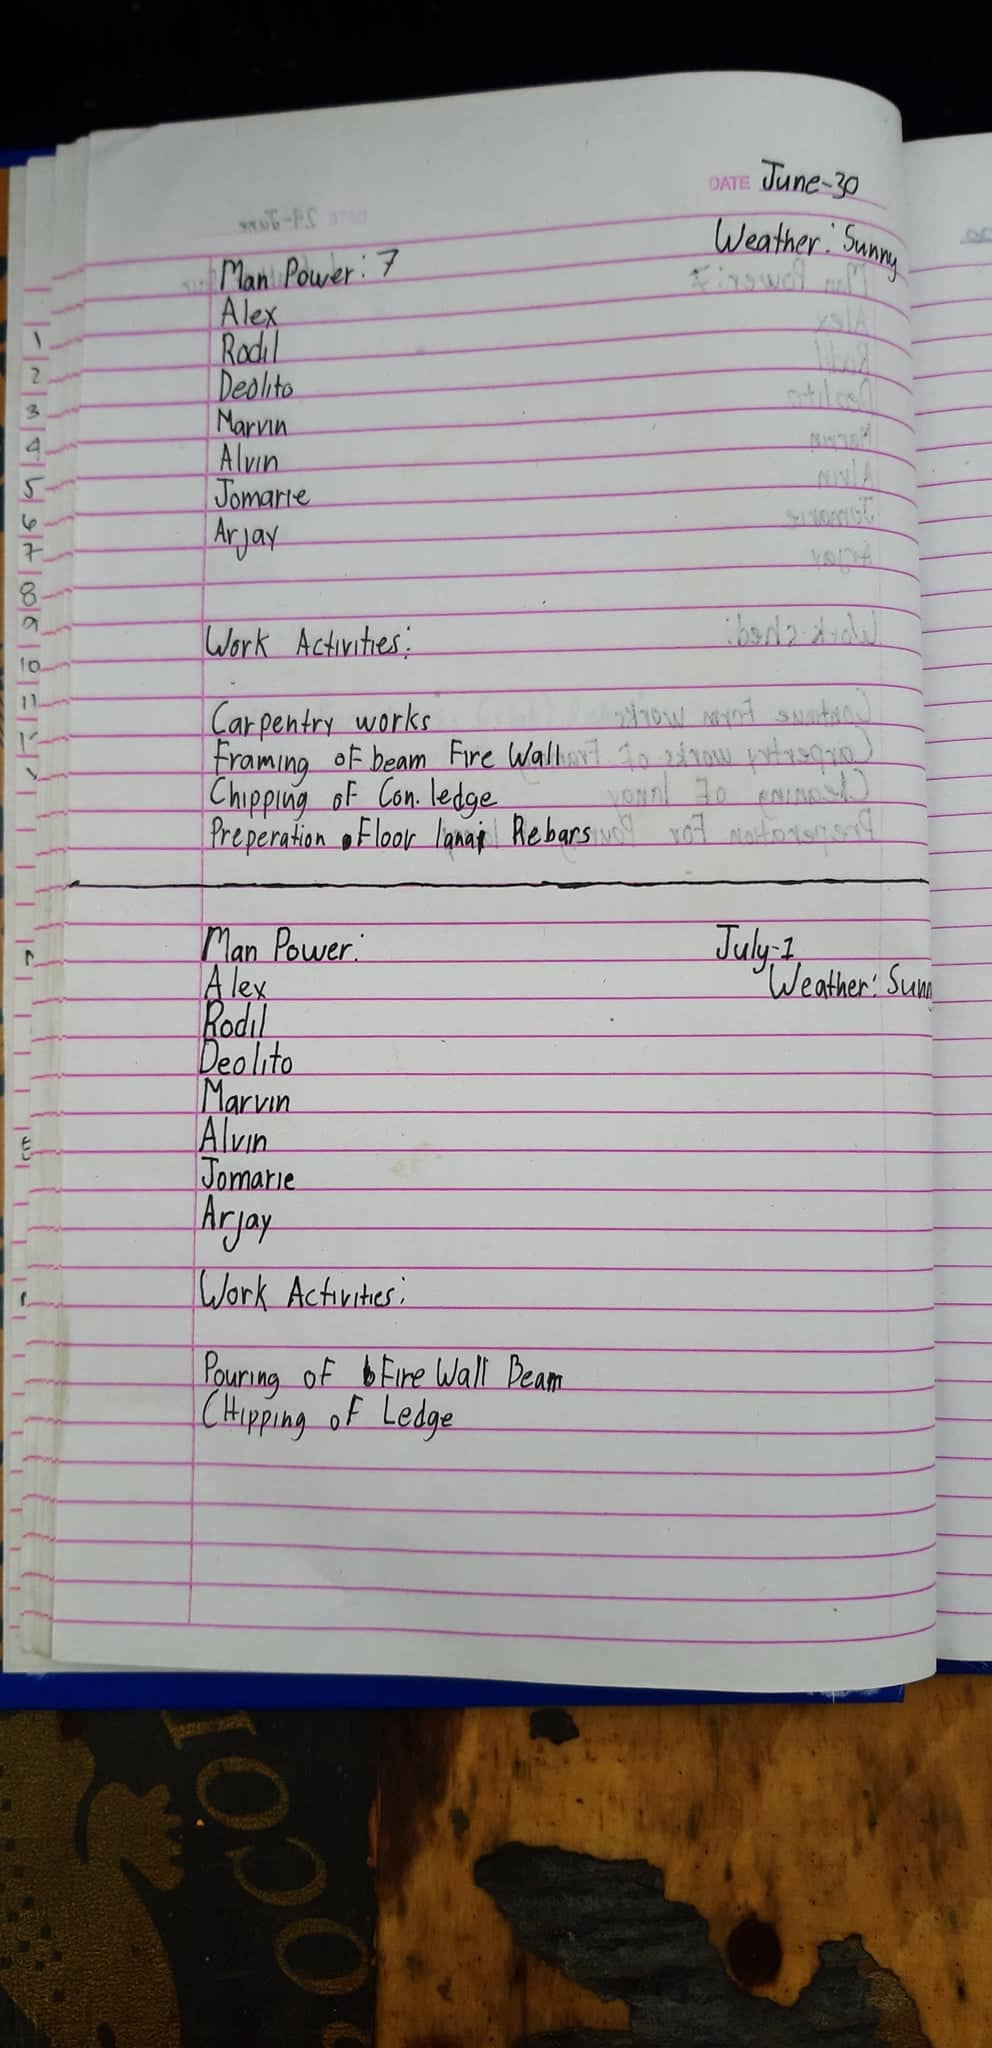 DATE June-30
Weather: Sunny
Man Power: 7
Alex
Rodil
Deolito
Marvin
Alvin
Jomarie
Arjay
Work Activities:
Carpentry works
Framing of beam Fire Wall
Chipping of Con. ledge
Preperation Floor lanai Rebars
Man Power:
July-1
Weather: Sunn
Alex
Rodil
Deolito
Marvin
Alvin
Jomarie
Arjay
Work Activities:
Pouring of Fire Wall Beam
CHipping of Ledge
1
2
3
4
5
6
7
8
9
10
11